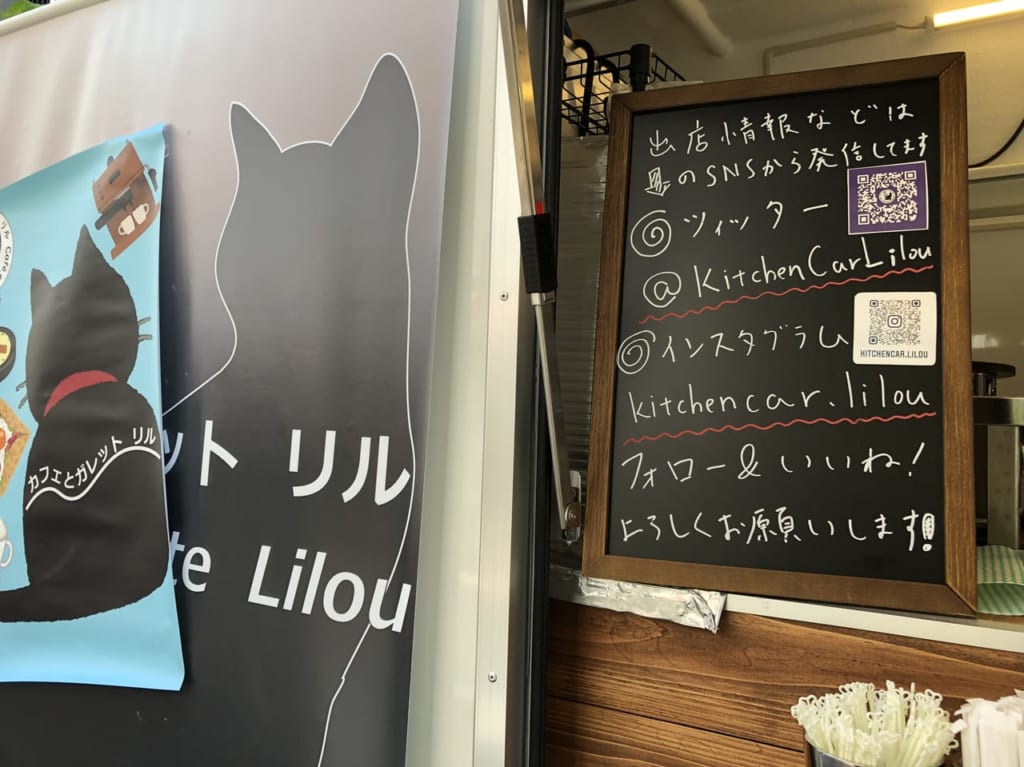 リル Café
カフェとガレット リル
ット リル
te Lilou
出店情報などは
のSNSから発信してます
◎ツイッター
@KitchenCarLilou
◎インスタグラム
KITCHENCAR.LILOU
kitchencar.lilou
フォロー&いいね!
よろしくお願いします!!